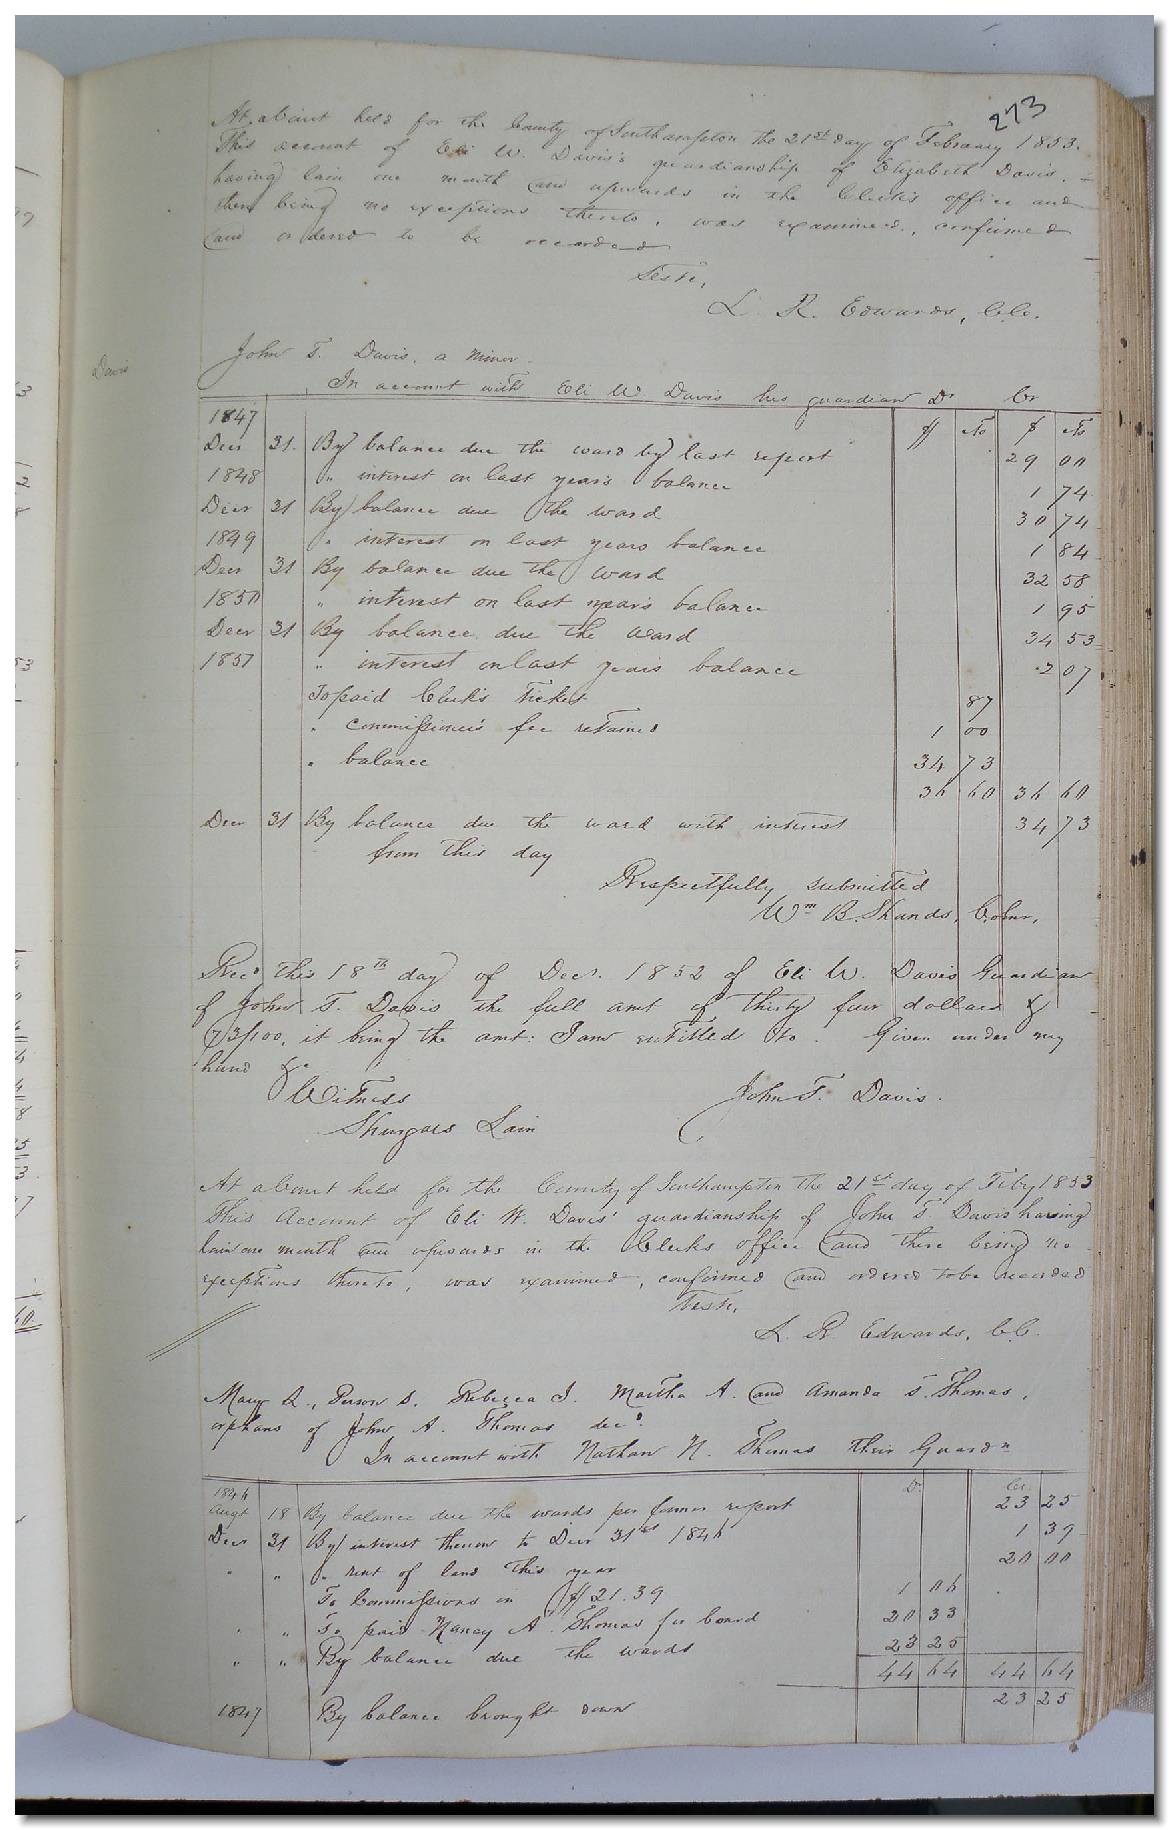 273
At a Court held for the County of Southampton the 21st day of February 1853.
This account of Eli W. Davis's guardianship of Elizabeth Davis,
having lain one month and upwards in the Clerk's office and
there being no exceptions thereto, was examined, confirmed
and ordered to be recorded
Teste,
L. R. Edwards, C.C.
Davis
John T. Davis, a minor.
In account with Eli W Davis his guardian Dr Cr
1847 $ Cts $ Cts
Decr 31. By balance due the ward by last report 29 00
1848 " interest on last year's balance 1 74
Decr 31 By balance due the ward 30 74
1849 " interest on last years balance 1 84
Decr 31 By balance due the ward 32 58
1850 " interest on last year's balance 1 95
Decr 31 By balance due the ward 34 53
1851 " interest on last years balance 2 07
To paid Clerk's Ticket 87
" commissioner's fee retained 1 00
" balance 34 73
36 60 36 60
Decr 31 By balance due the ward with interest 34 73
from this day
Respectfully submitted
Wm B. Shands, Comr,
Recd this 18th day of Decr. 1852 of Eli W. Davis Guardian
of John T. Davis the full amt of thirty four dollars &
73/100, it being the amt: I am entitled to. Given under my
hand &c
Witness John T. Davis.
Lain
At a Court held for the County of Southampton the 21st day of Feby 1853
This Account of Eli W. Davis' guardianship of John T. Davis having
lain one month and upwards in the Clerks office and there being no
exceptions thereto, was examined, confirmed and ordered to be recorded
Teste,
L. R. Edwards, C.C.
Mary Person S. Rebecca J. Martha A. and Amanda T. Thomas,
orphans of John A. Thomas decd.
In account with Nathan N. Thomas their Guardn
1846 Dr Cr
Augt 18 By balance due the wards per former report 23 25
Decr 31 By interest thereon to Decr 31st 1846 1 39
" " " rent of land this year 20 00
To Commissions on $21.39 1 06
" " To paid Nancy A. Thomas for board 20 33
" " By balance due the wards 23 25
44 64 44 64
1847 By balance brought down 23 25